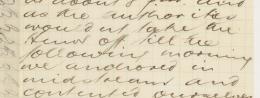 as the authorities
wouldn't take the
Huns off till the
following morning
we anchored in
midstream and
contented ourselves